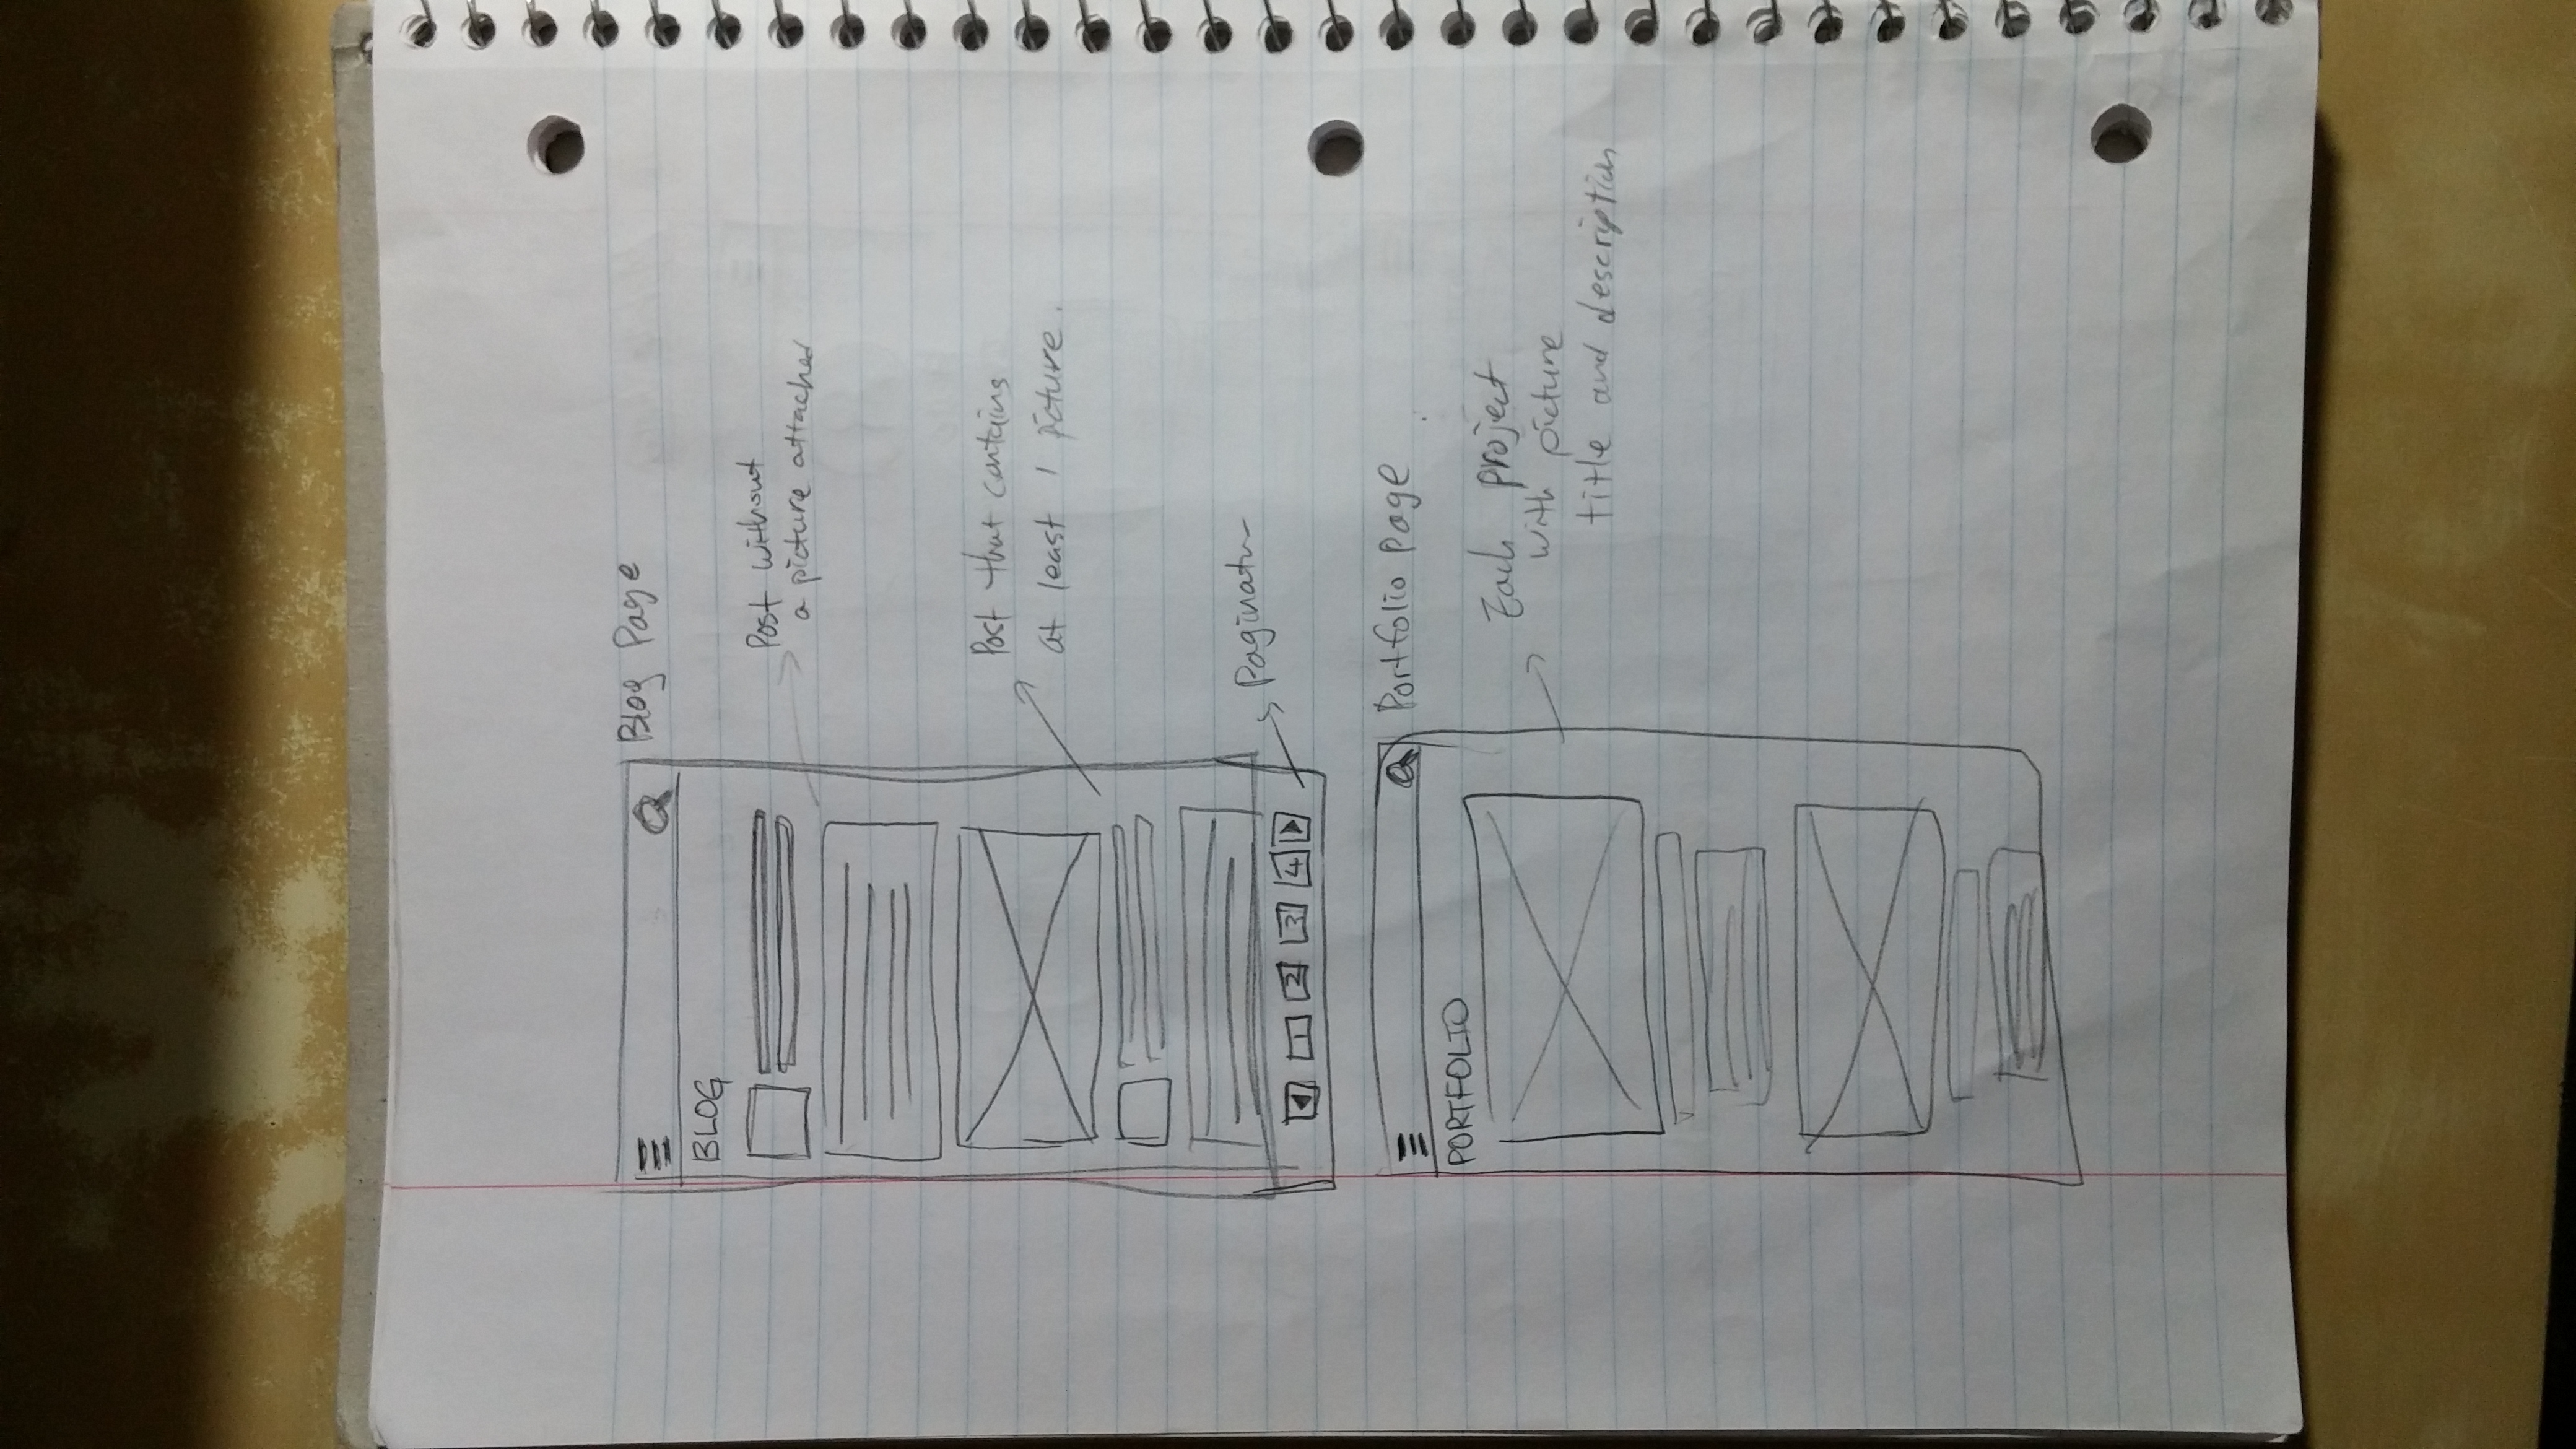 Blog Page
BLOG
Post without
a picture attached
Post that contains
at least 1 picture.
Paginatn
1 2 3 4
Portfolio page
PORTFOLIO
Each project
with picture
title and description